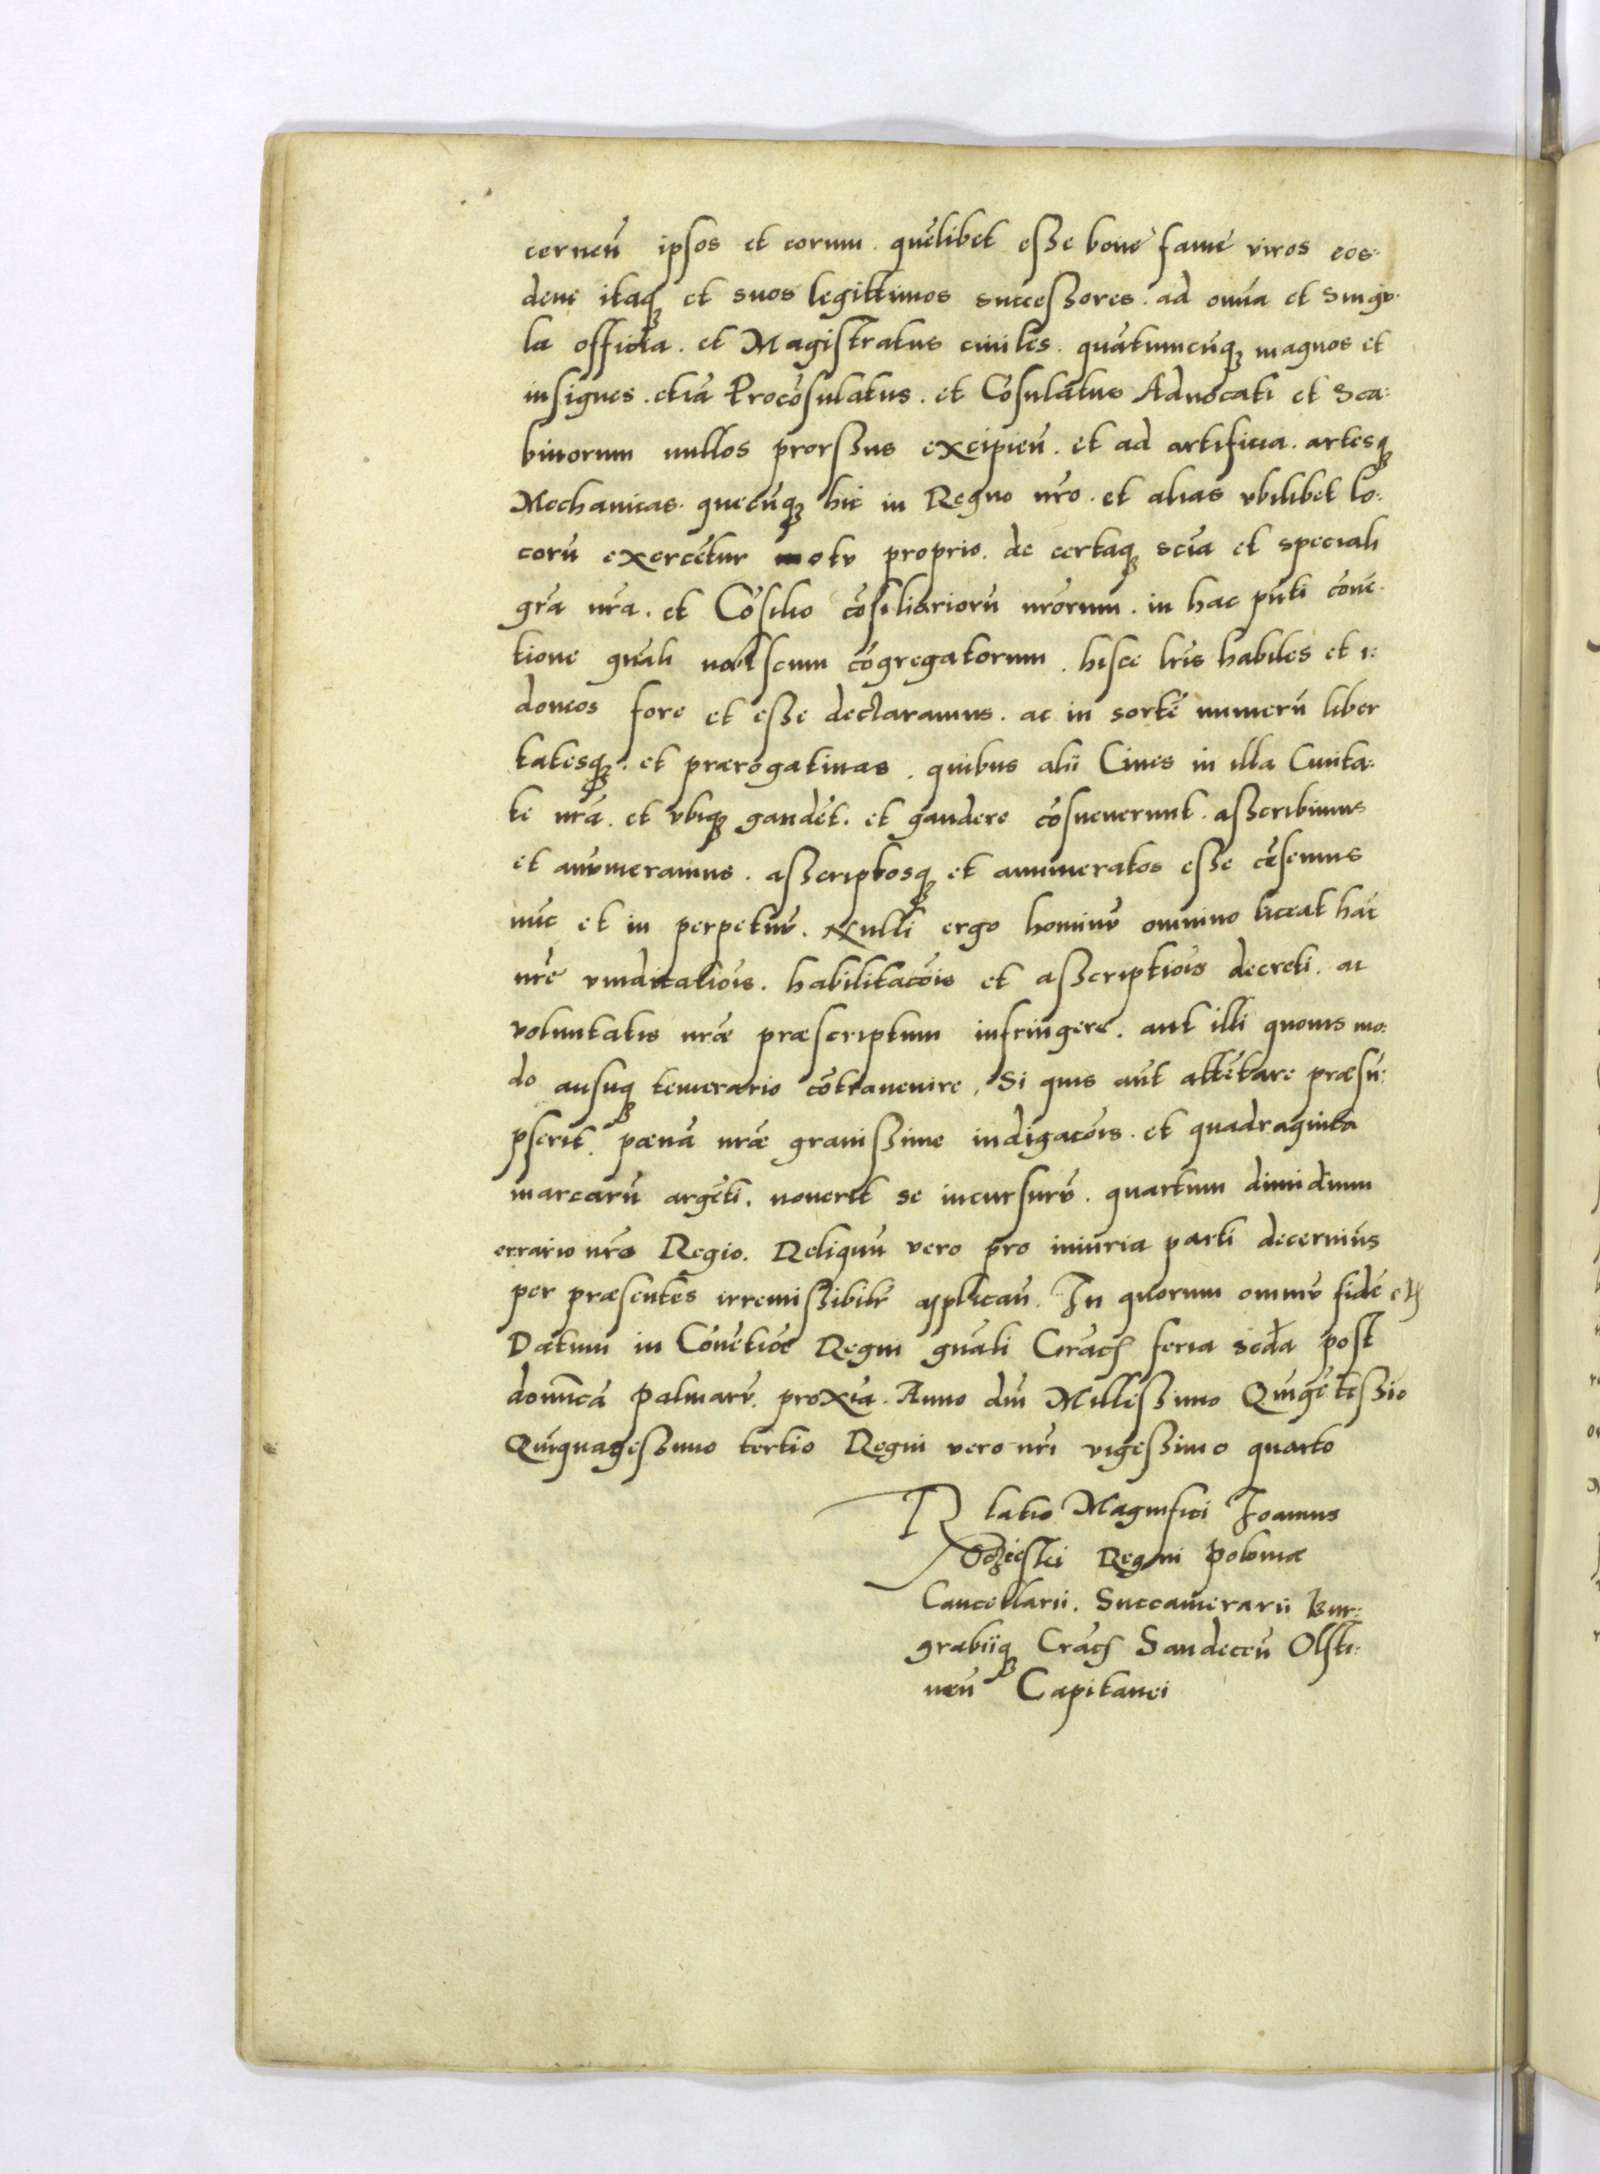 cerneñ ipsos et eorum . quēlibet esse bone fame viros eos:
dem itaq et suos legittimos successores . ad omīa et Singu:
la officia . et Magistratus ciuiles . quātumcūq magnos et
insignes . etiā Procōsulatus . et Cōsulatus Aduocati et Sca:
binorum nullos prorsus excipieñ . et ad artificia . artesq
Mechanicas . quecūq hic in Regno nr̄o . et alias vbilibet lo:
corū exercētur motu proprio . de certaq scīa et speciali
gr̄a nr̄a . et Cōsilio cōsiliariorū nr̄orum . in hac pn̄ti cōue:
tione gn̄ali nobiscum cōgregatorum . hisce lr̄is habiles et i:
doneos fore et esse declaramus . ac in sortē numerū liber
tatesq . et prærogatiuas . quibus alii Ciues in illa Ciuita:
te nr̄a . et vbiq gaudēt . et gaudere cōsueuerunt . asscribimus
et anumeramus . asscriptosq et annumeratos esse cēsemus
nūc et in perpetuū . Nulli ergo hominū omnino liceat hāc
nr̄e vindicatiōis . habilitacōis et asscriptiōis decreti . ac
voluntatis nr̄æ præscriptum infringere . aut illi quouis mo:
do ausuq temerario cōtrauenire . Si quis aūt attētare præsū:
pserit . pœnā nr̄æ grauissime indigacōis . et quadraginta
marcarū argēti . nouerit se incursurū . quartum dimidium
errario nr̄o Regio . Reliquū vero pro iniuria parti decernim̄s
per præsentes irremissibilr̄ applicañ . In quorum omniū fidē etc
Datum in Cōuētiōe Regni gn̄ali Cracȝ feria scd̄a post
domīcā Palmarū . proxīa . Anno dn̄i Millessimo Quīgētessīo
Quīquagessimo tertio Regni vero nr̄i vigessimo quarto
Rlatio Magnifici Ioannis
Oczieski Regni Poloniæ
Cancellarii . Succamerarii Bur:
grabiiq Cracȝ Sandeceñ Olsti:
neñ Capitanei